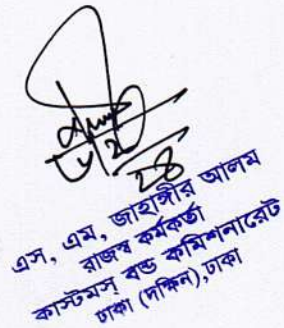 এস, এম, জাহাঙ্গীর আলম
রাজস্ব কর্মকর্তা
কাস্টমস্ বন্ড কমিশনারেট
ঢাকা (দক্ষিন),ঢাকা